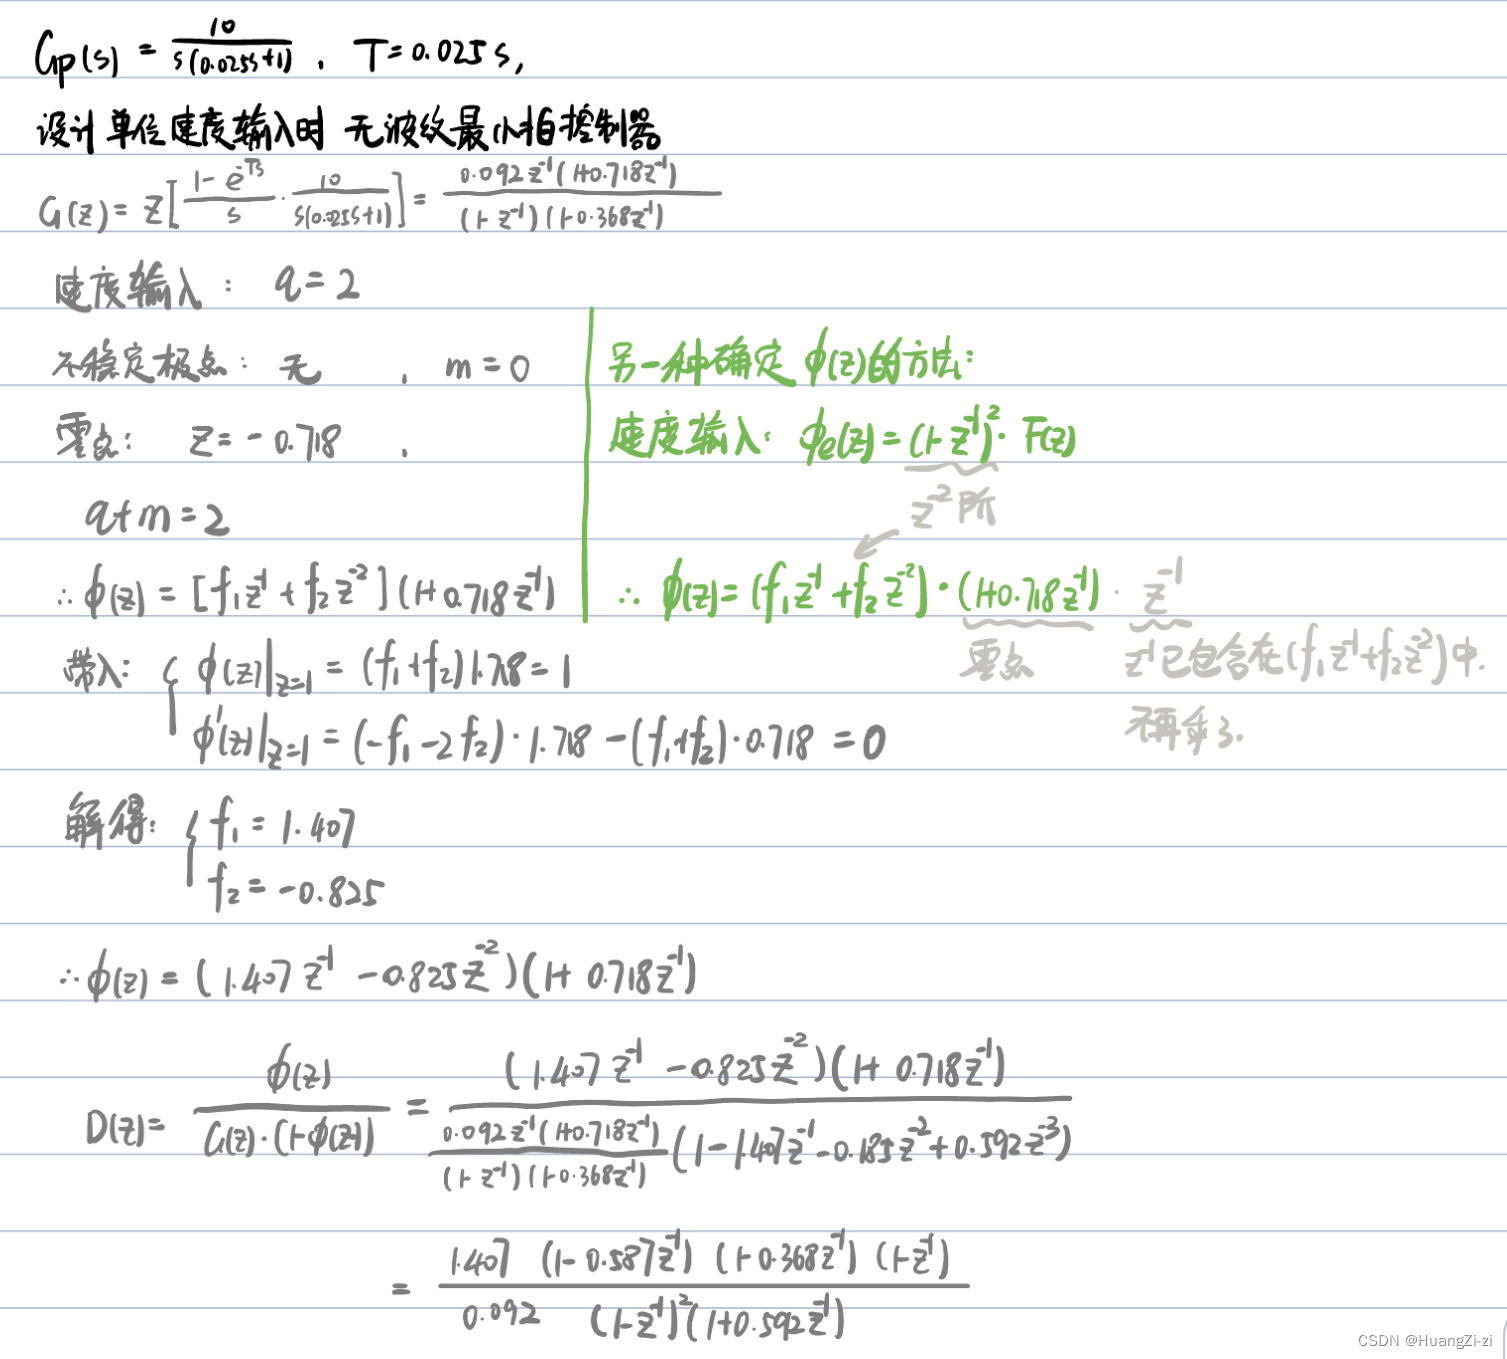 Gp(s) = 10 / s(0.025s+1) , T=0.025s,
设计单位速度输入时 无波纹最小拍控制器
G(z) = Z[ (1-e^-Ts)/s · 10/(s(0.025s+1)) ] = 0.092z^-1(1+0.718z^-1) / (1-z^-1)(1-0.368z^-1)
速度输入: q=2
不稳定极点: 无 , m=0
零点: z=-0.718 ,
q+m=2
∴ φ(z) = [f₁z^-1+f₂z^-2](1+0.718z^-1)
另一种确定 φ(z)的方法:
速度输入: φe(z)=(1-z^-1)^2 · F(z)
z^-2 阶
∴ φ(z)=(f₁z^-1+f₂z^-2)·(1+0.718z^-1) · z^-1
零点
z^-1已包含在(f₁z^-1+f₂z^-2)中.
不再乘了.
带入: { φ(z)|z=1 = (f₁+f₂)1.718=1
φ'(z)|z=1 = (-f₁-2f₂)·1.718-(f₁+f₂)·0.718 =0
解得: { f₁=1.407
f₂=-0.825
∴ φ(z) = (1.407z^-1-0.825z^-2)(1+0.718z^-1)
D(z)= φ(z) / G(z)·(1-φ(z)) = (1.407z^-1-0.825z^-2)(1+0.718z^-1) / [0.092z^-1(1+0.718z^-1) / (1-z^-1)(1-0.368z^-1)] (1-1.407z^-1-0.185z^-2+0.592z^-3)
= 1.407 (1-0.587z^-1) (1-0.368z^-1) (1-z^-1) / 0.092 (1-z^-1)^2(1+0.592z^-1)
CSDN @HuangZi-zi